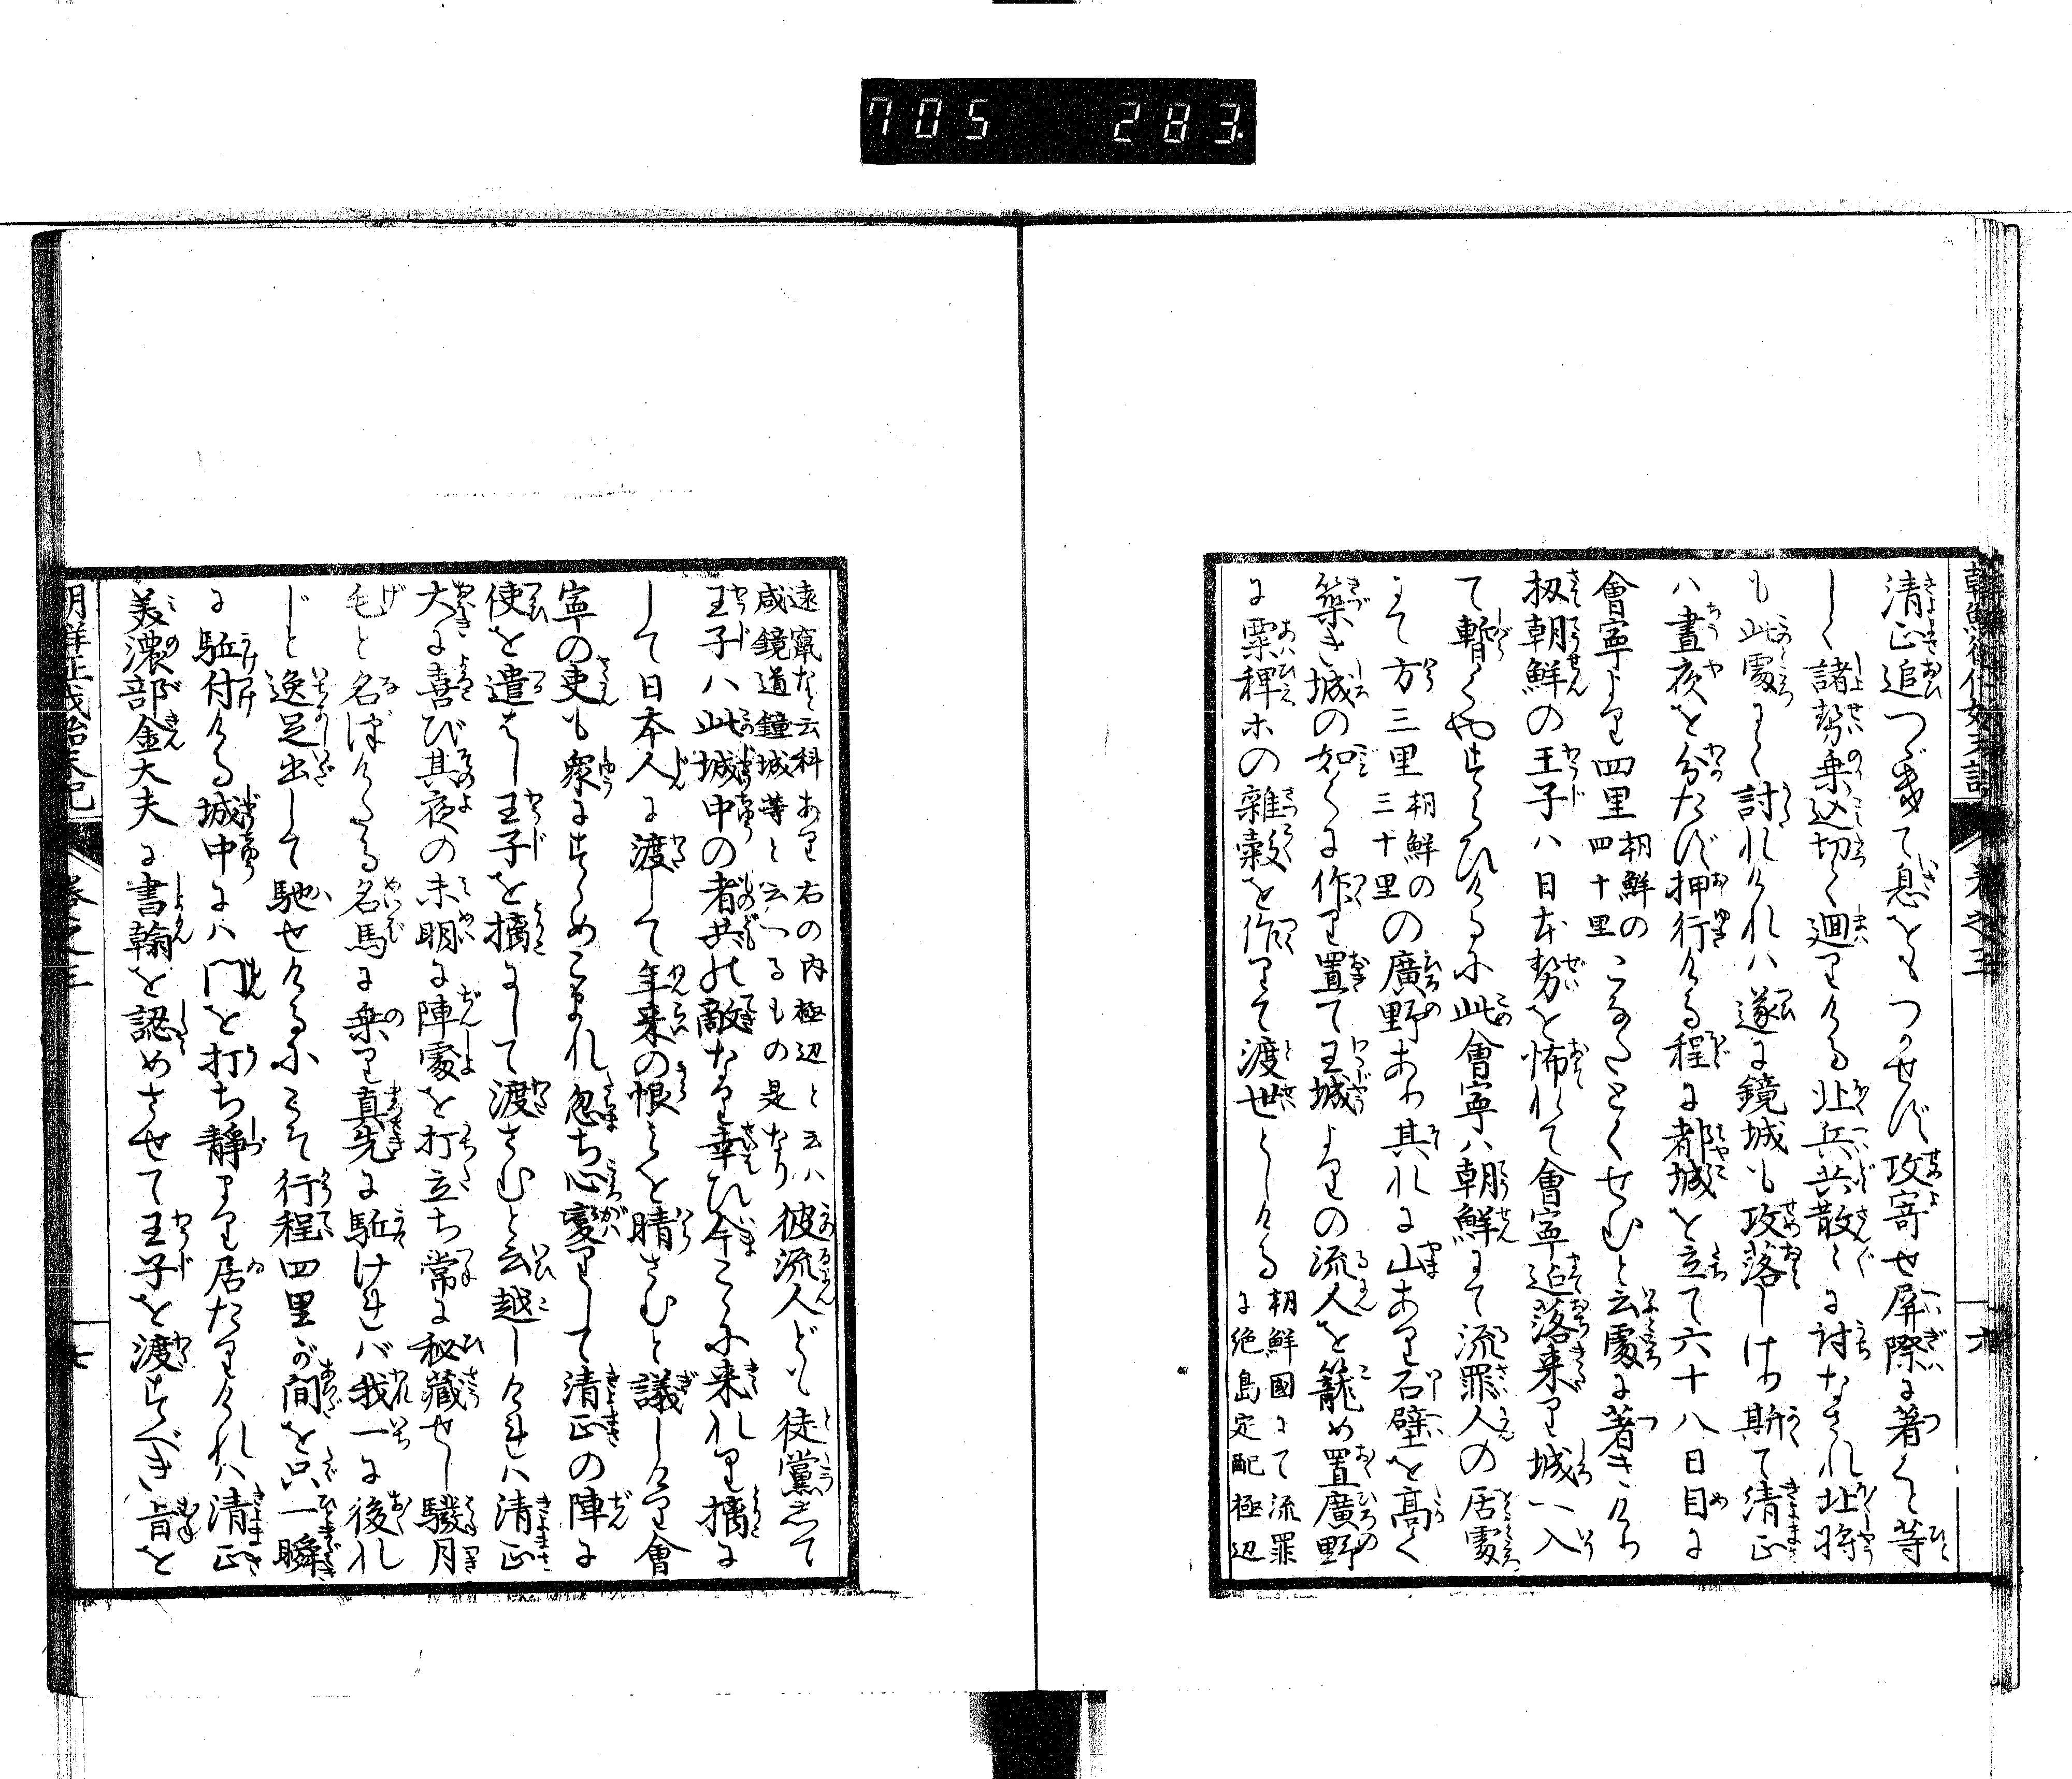 705 283
清正追つゞきて息をもつかせず攻寄せ屏際に著くと等
しく諸勢乗込切て廻りける北兵共散々に討なされ北将
も此處にて討れければ遂に鏡城も攻落しけり斯て清正
ハ晝夜を分たず押行ける程に都城を立て六十八日目に
會寧より四里朝鮮の四十里こなたとくせむと云處に著きけり
扨朝鮮の王子ハ日本勢を怖れて會寧迄落来り城へ入
て暫くやすらひけるに此會寧ハ朝鮮にて流罪人の居處
にて方三里朝鮮の三十里の廣野あり其れに山あり石壁を高く
築き城の如くに作り置て王城よりの流人を籠め置廣野
に粟稗ホの雑穀を作りて渡世としける朝鮮國にて流罪に絶島定配極辺
遠竄など云科あり右の内極辺と云ハ咸鏡道鐘城等と云へるもの是なり彼流人ども徒黨して
王子ハ此城中の者共の敵なり幸ひ今こゝに来れり擒に
して日本人に渡して年来の恨ミを晴さむと議しけり會
寧の吏も衆にすゝめこまれ忽ち心變りして清正の陣に
使を遣はし王子を擒にして渡さむと云越しければ清正
大に喜び其夜の未明に陣處を打立ち常に秘藏せし騣月
毛と名づけたる名馬に乗り真先に駈けれバ我一に後れ
じと逸足出して馳せけるにこそ行程四里が間を只一瞬
に駈付ける城中にハ門を打ち靜まり居たりければ清正
美濃部金大夫に書翰を認めさせて王子を渡すべき旨を
巻之三
七
巻之三
六